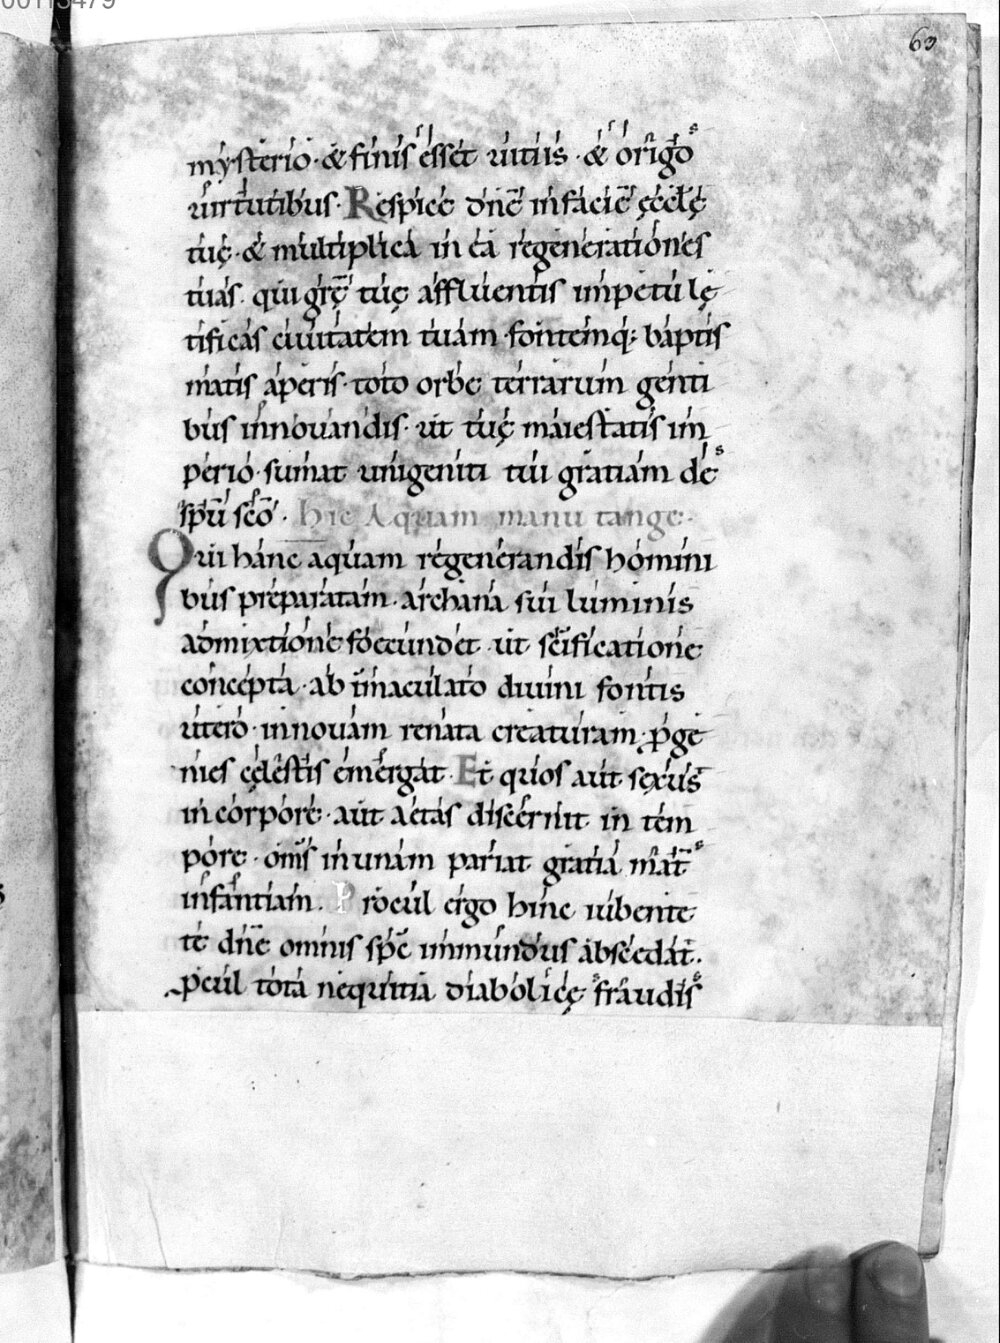 00113479
63
mysterio · & finis essèt uitiis · & origo
uirtutibus · Respice dn̄e in faciē ęcclę
tuę · & multiplica in ea regenerationes
tuas · qui grę̄ tuę affluentis impetu lę
tificas ciuitatem tuam · fontemq; baptis
matis aperis · toto orbe terrarum genti
bus innouandis · ut tuę maiestatis im
perio · sumat unigeniti tui gratiam de
spū scō · Hic Aquam manu tange ·
Qui hanc aquam regenerandis homini
bus preparatam · archana sui luminis
admixtione foecundet · ut sc̄ificatione
concepta · ab īmaculato diuini fontis
utero · in nouam renata creaturam · ꝓge
nies cęlestis emergat · Et quos aut sexus
in corpore · aut aetas discernit in tem
pore · om̄s in unam pariat gratia mat̄
infantiam · Procul ergo hinc iubente
te dn̄e omnis spc̄ inmundus abscedat ·
ꝓcul tota nequitia diabolicę fraudis